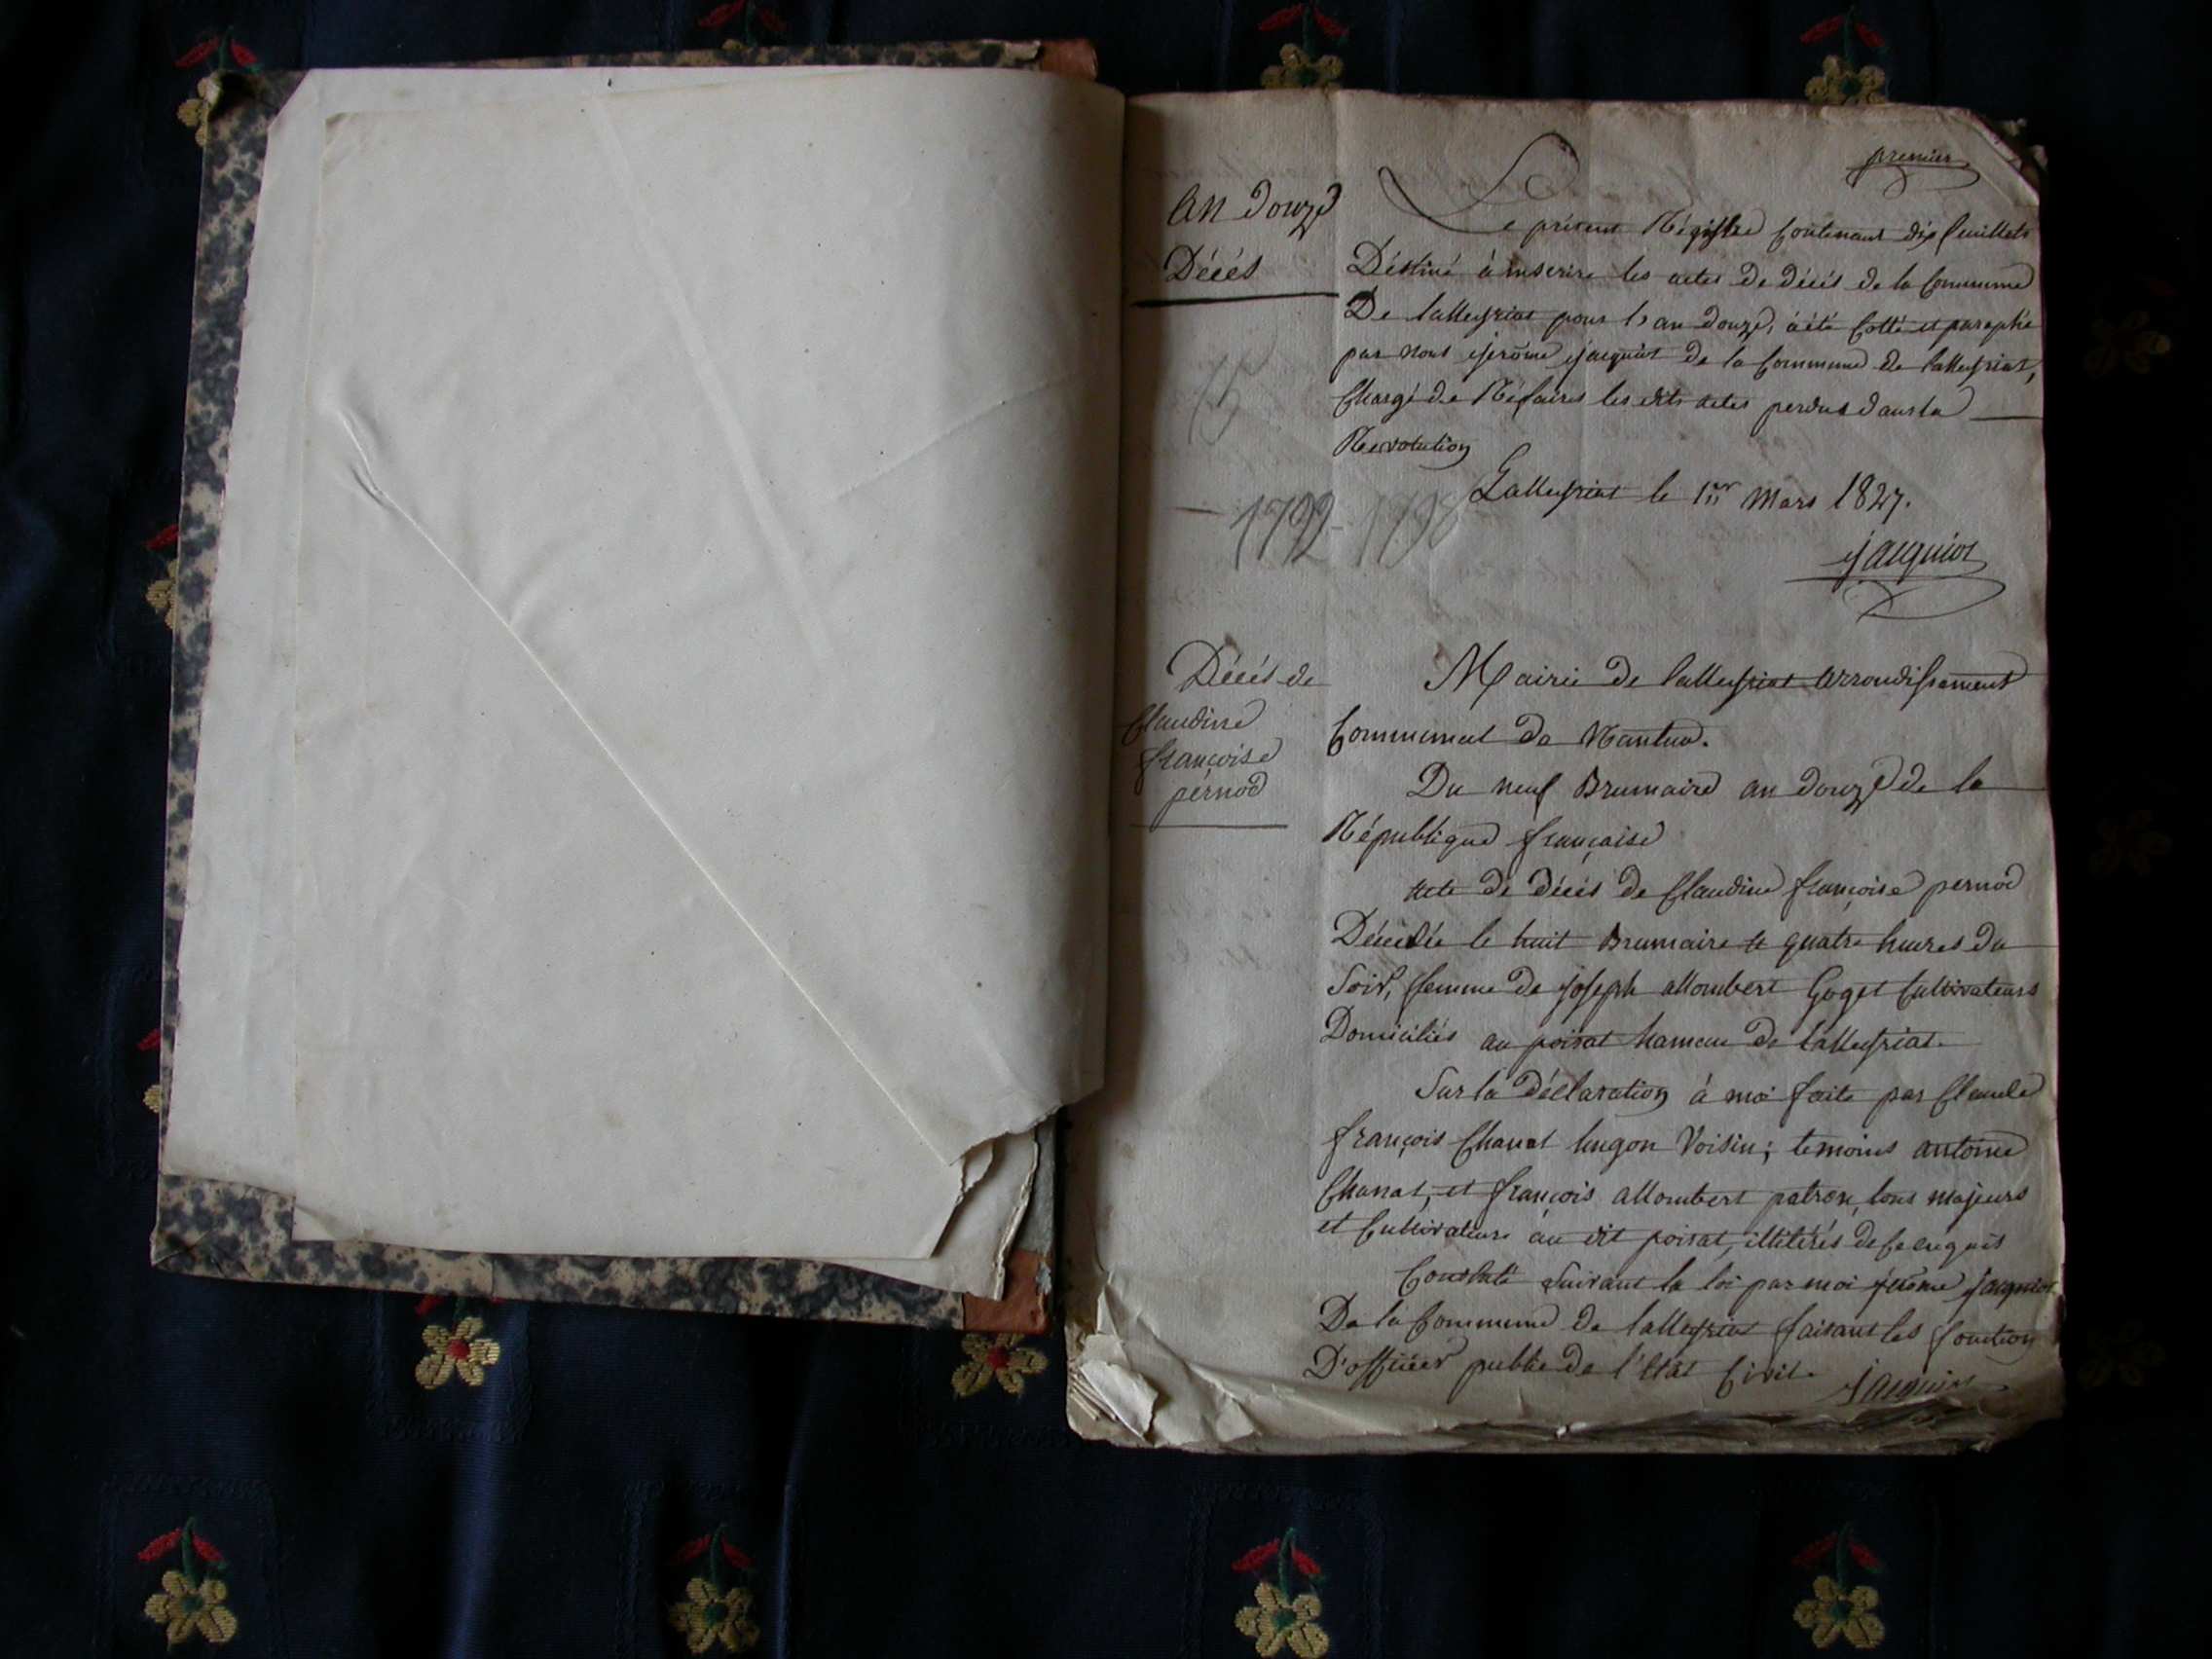 premier
An Douze
Décés
Le présent Régistre Contenant dix feuillets
Déstiné à inscrire les actes de Décés de la Commune
De Lalleyriat pour l'an Douze, à été Cotté et paraphé
par nous jerôme jacquiot de la Commune de Lalleyriat,
Chargé de Réfaires les dits actes perdus dans la
Revolution
Lalleyriat le 1er Mars 1827.
jacquiot
1792-1798
Décés de
Claudine
françoise
pernod
Mairie de Lalleyriat Arrondissement
Communal de Nantua.
Du neuf Brumaire an Douze de la
République française
Acte de Décés de Claudine françoise pernod
Décédée le huit Brumaire à quatre heures du
Soir, femme de joseph allombert Goget Cultivateurs
Domiciliés au poisat hameau de Lalleyriat.
Sur la Déclaration à moi faite par Claude
françois Chanal hugon Voisin; temoins antoine
Chanal, et françois allombert patron, tous majeurs
et Cultivateurs au dit poisat, illitérés de ce enquis
Constaté Suivant la loi par moi jerôme jacquiot
De la Commune de Lalleyriat faisant les fonction
D'officier public de l'état Civil.
jacquiot